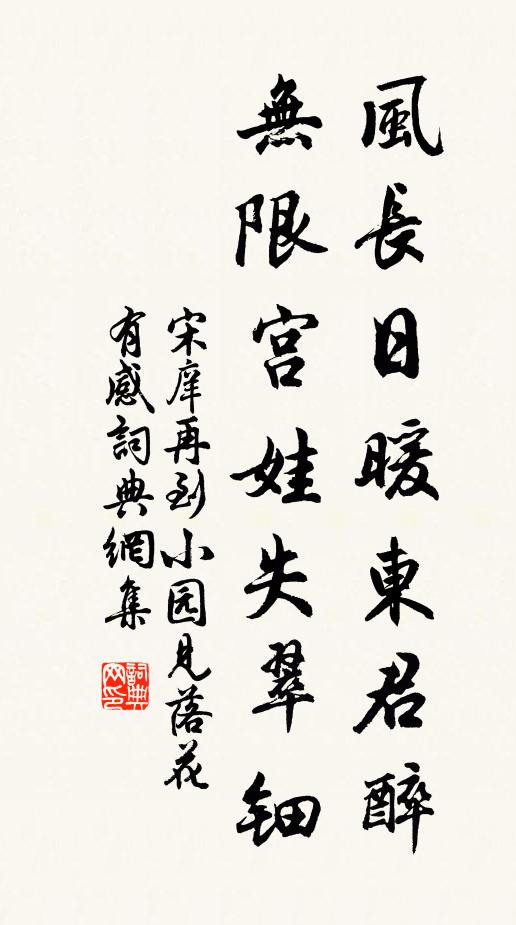 風長日暖東君醉
無限宫娃失翠钿
宋庠再到小园見落花
有感詞典網集
詞典网印